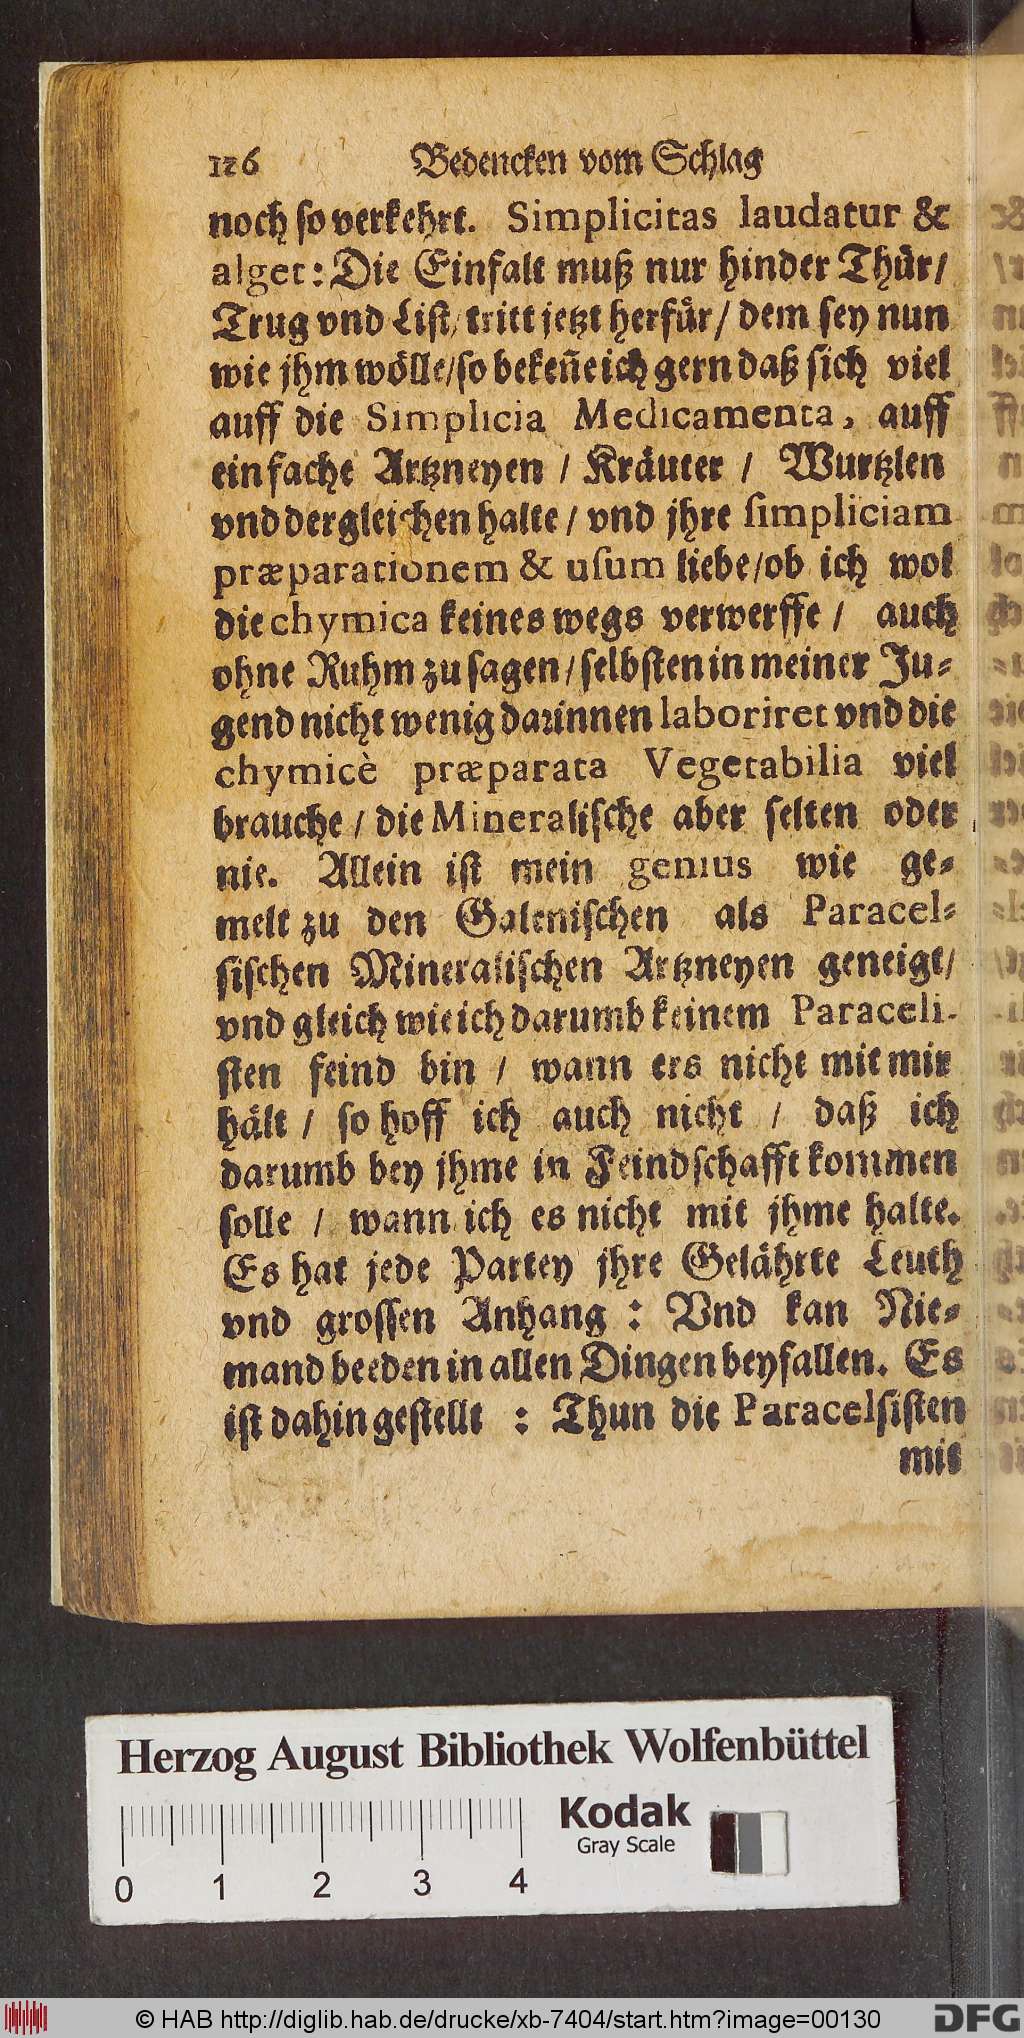 126 Bedencken vom Schlag
noch so verkehrt. Simplicitas laudatur &
alget: Die Einfalt muß nur hinder Thür/
Trug vnd List/ tritt jetzt herfür/ dem sey nun
wie jhm wölle/ so bekeñe ich gern daß sich viel
auff die Simplicia Medicamenta, auff
einfache Artzneyen / Kräuter / Wurtzlen
vnd dergleichen halte / vnd jhre simpliciam
præparationem & usum liebe/ ob ich wol
die chymica keines wegs verwerffe / auch
ohne Ruhm zu sagen / selbsten in meiner Ju⸗
gend nicht wenig darinnen laboriret vnd die
chymicè præparata Vegetabilia viel
brauche / die Mineralische aber selten oder
nie. Allein ist mein genius wie ge⸗
melt zu den Galenischen als Paracel⸗
sischen Mineralischen Artzneyen geneigt/
vnd gleich wie ich darumb keinem Paraceli-
sten feind bin / wann ers nicht mit mir
hält / so hoff ich auch nicht / daß ich
darumb bey jhme in Feindschafft kommen
solle / wann ich es nicht mit jhme halte.
Es hat jede Partey jhre Gelährte Leuth
vnd grossen Anhang : Vnd kan Nie⸗
mand beeden in allen Dingen beyfallen. Es
ist dahin gestellt : Thun die Paracelsisten
mit
Herzog August Bibliothek Wolfenbüttel
Kodak
Gray Scale
0 1 2 3 4
© HAB http://diglib.hab.de/drucke/xb-7404/start.htm?image=00130
DFG